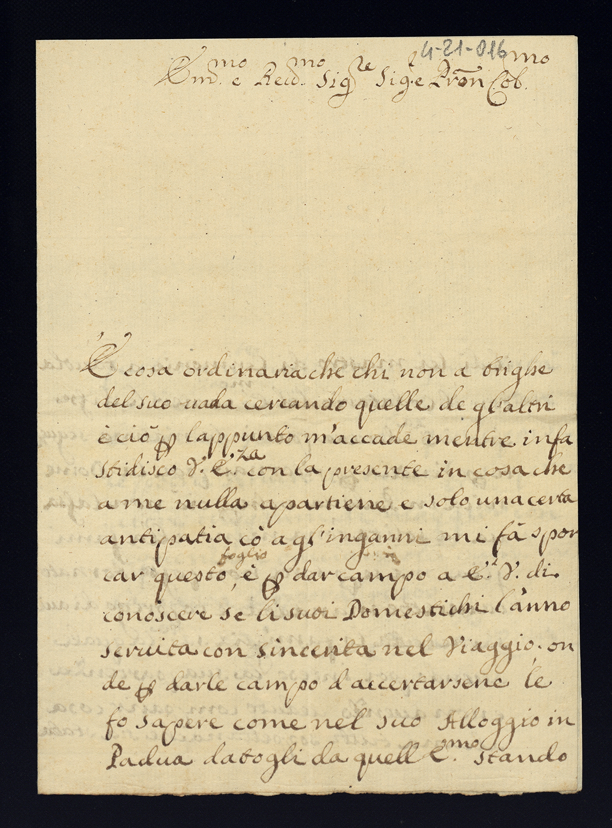 4-21-816
Em.mo e Reu.mo Sig.re Sig.e Pron Col.mo
È cosa ordinaria che chi non a brighe
del suo uada cercando quelle de gl'altri
è ciò p l'appunto m'accade mentre infa
stidisco V. E.za con la presente in cosa che
a me nulla apartiene e solo una certa
antipatia cò a gl'inganni mi fà spor
car questo foglio, è p dar campo a E. V. di
conoscere se li suoi Domestichi l'anno
seruita con sincerita nel Viaggio. on
de p darle campo d'accertarsene le
fo sapere come nel suo Alloggio in
Padua datogli da quell E.mo stando